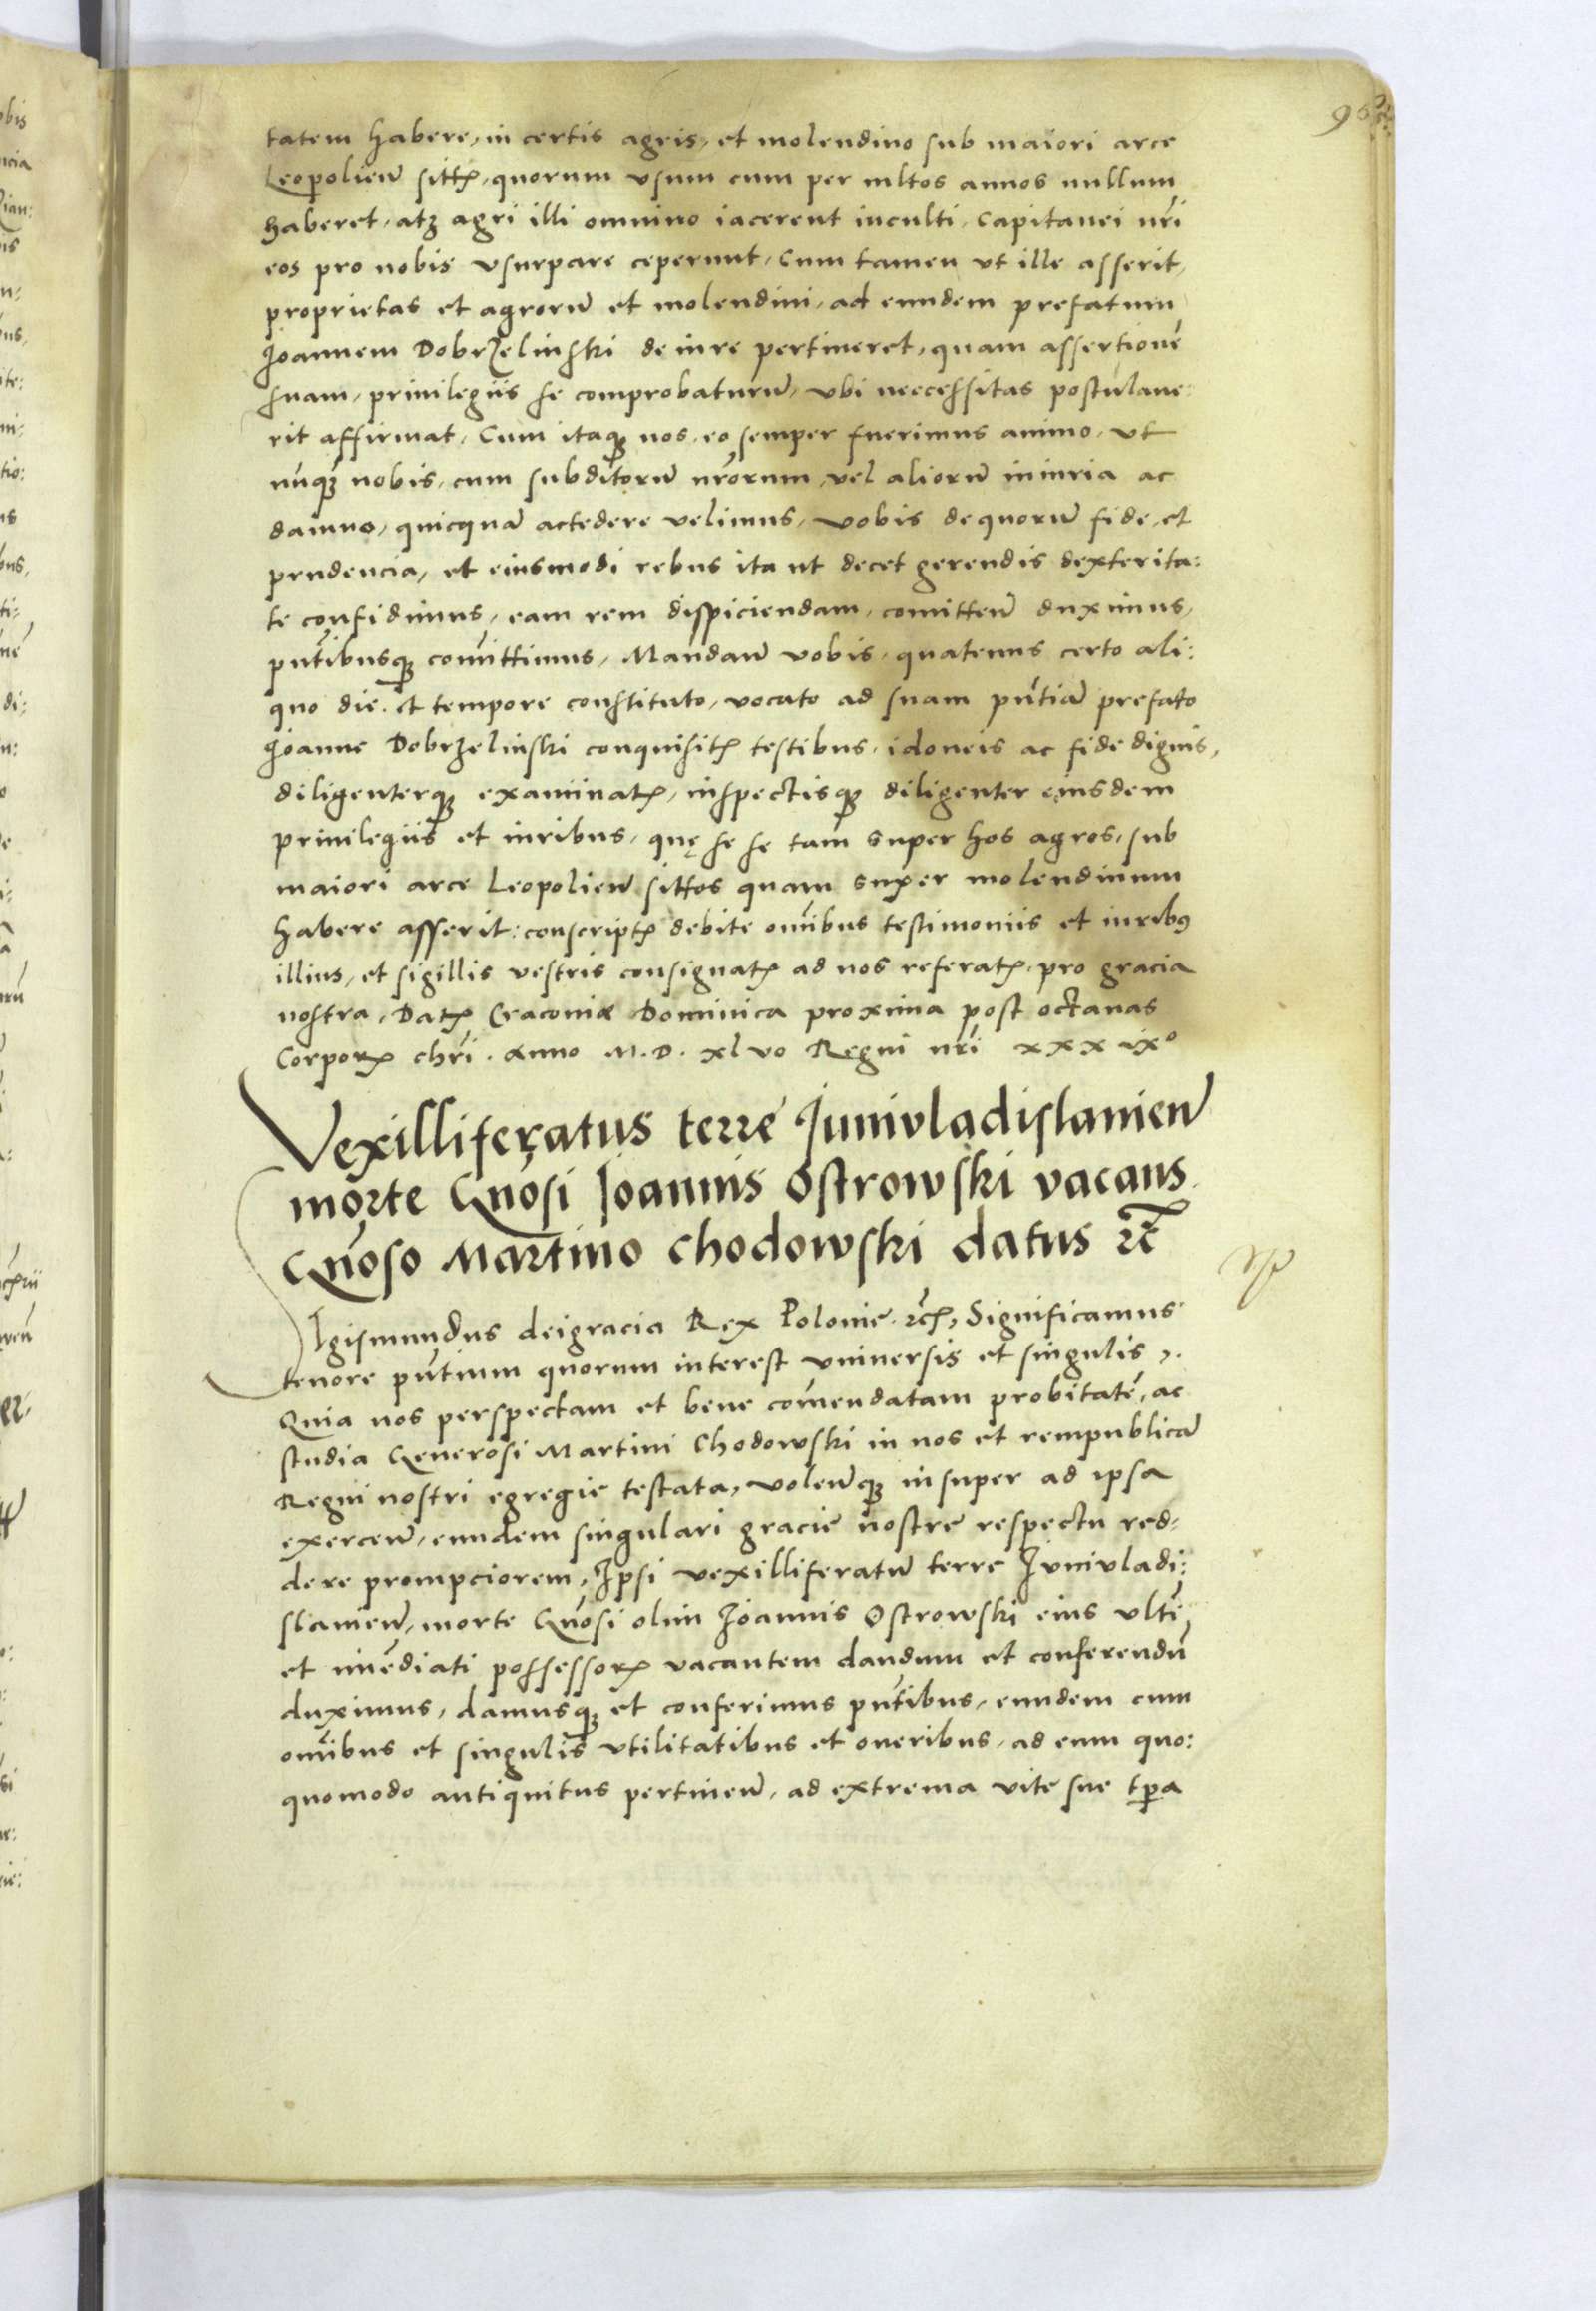 96
tatem habere, in certis agris, et molendino sub maiori arce
Leopolien̄ sittꝭ, quorum vsum cum per mltos annos nullum
haberet, atꝫ agri illi omnino iacerent inculti, Capitanei nr̄i
eos pro nobis vsurpare ceperunt, Cum tamen vt ille asserit,
proprietas et agrorū et molendini, ad eundem prefatum
Joannem Dobrzelinski de iure pertineret, quam assertionē
suam, priuilegiis se comprobaturū, vbi neecessitas postulaue:
rit affirmat, Cum itaqꝫ nos, eo semper fuerimus animo, vt
nūqꝫ nobis, cum subditorū nr̄orum, vel aliorū iniuria ac
damno, quicquā accedere velimus, vobis de quorū fide, et
prudencia, et eiusmodi rebus ita ut decet gerendis dexterita:
te confidimus, eam rem dispiciendam, comitten̄ duximus,
pn̄tibusqꝫ comittimus, Mandan̄ vobis, quatenus certo ali:
quo die, et tempore constituto, vocato ad suam pn̄tiā prefato
Joanne Dobrzelinski conquisitꝭ testibus, idoneis ac fide dignis,
diligenterqꝫ examinatꝭ, inspectisqꝫ diligenter eiusdem
priuilegiis et iuribus, quę se se tam super hos agros, sub
maiori arce Leopolien̄ sittos quam super molendinum
habere asserit: conscriptꝭ debite om̄ibus testimoniis et iuribꝰ
illius, et sigillis vestris consignatꝭ ad nos referatꝭ, pro gracia
nostra, Datꝭ Cracouiæ Dominica proxima post octauas
Corporꝭ chr̄i. Anno M.D. xl vo Regni nr̄i xxx ixº
Vexilliferatus terre Juniuladislauien̄
morte Gn̄osi Joannis Ostrowski vacans
Gn̄oso Martino Chodowski datus ꝛc̄
Igismundus dei gracia Rex Polonie ꝛcꝭ, Significamus
tenore pn̄tium quorum interest vniuersis et singulis,
Quia nos perspectam et bene com̄endatam probitatē, ac
studia Generosi Martini Chodowski in nos et rempublicā
Regni nostri egregie testata, volen̄qꝫ insuper ad ipsa
exercen̄, eundem singulari gracie nostre respectu red:
dere prompciorem, Ipsi vexilliferatū terre Iuniuladi:
slauien̄, morte Gn̄osi olim Joannis Ostrowski eius vltī
et im̄ediati possessorꝭ vacantem dandum et conferendū
duximus, damusqꝫ et conferimus pn̄tibus, eundem cum
om̄ibus et singulis vtilitatibus et oneribus, ad eum quo:
quomodo antiquitus pertinen̄, ad extrema vite sue tp̄a